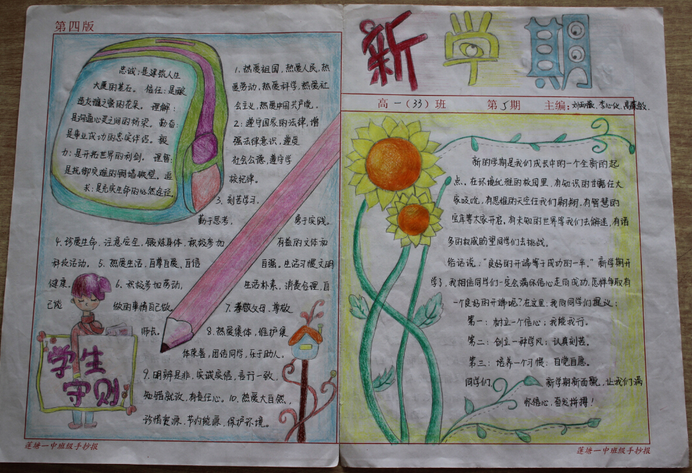 第四版
忠诚：是建筑人生
大厦的基石。信任：是破
译交往之窗的花朵。理解：
是沟通心灵之间的桥梁。勤奋：
是事业成功的忠实伴侣。毅
力：是开拓世界的利剑。
1、热爱祖国，热爱人民，热
爱劳动，热爱科学，热爱社
会主义，热爱中国共产党。
2：遵守国家的法律，增
强法律意识，遵守
社会公德，遵守学
校纪律。
3、刻苦学习，
勤于思考，勇于实践。
4、珍爱生命，注意安全，锻炼身体，积极参加
有益的文体和
科技活动。5、热爱生活，自尊自爱，自信
自强，生活习惯文明
健康。6、积极参加劳动，
生活朴素，消费合理，自
己能做的事情自己做。
7、孝敬父母，尊敬
师长。
8、热爱集体，维护集
体荣誉，团结同学，乐于助人。
9、明辨是非，实诚实信，言行一致，
知错就改，有责任心。10、热爱大自然，
珍惜资源，节约能源，保护环境。
学生
守则
莲塘一中班级手抄报
新学期
高一（33）班 第5期 主编：
新的学期是我们成长中的一个全新的起
点。在环境优雅的校园里，有知识的甘露任大
家吸吮，有思维的天空任我们翱翔，有智慧的
宝库等大家开启，有未知的世界等我们去解迷，有诸
多的权威的等同学们去挑战。
俗话说：“良好的开端等于成功的一半。”新学期开
学了，我相信同学们一定会满怀信心走向成功，怎样争取有
一个良好的开端呢？在这里，我向同学们提议：
第一：树立一个信心：我能我行。
第二：创立一种学风：认真刻苦。
第三：培养一个习惯：自觉自愿。
同学们 新学期新面貌，让我们满
怀信心，奋发拼搏！
莲塘一中班级手抄报